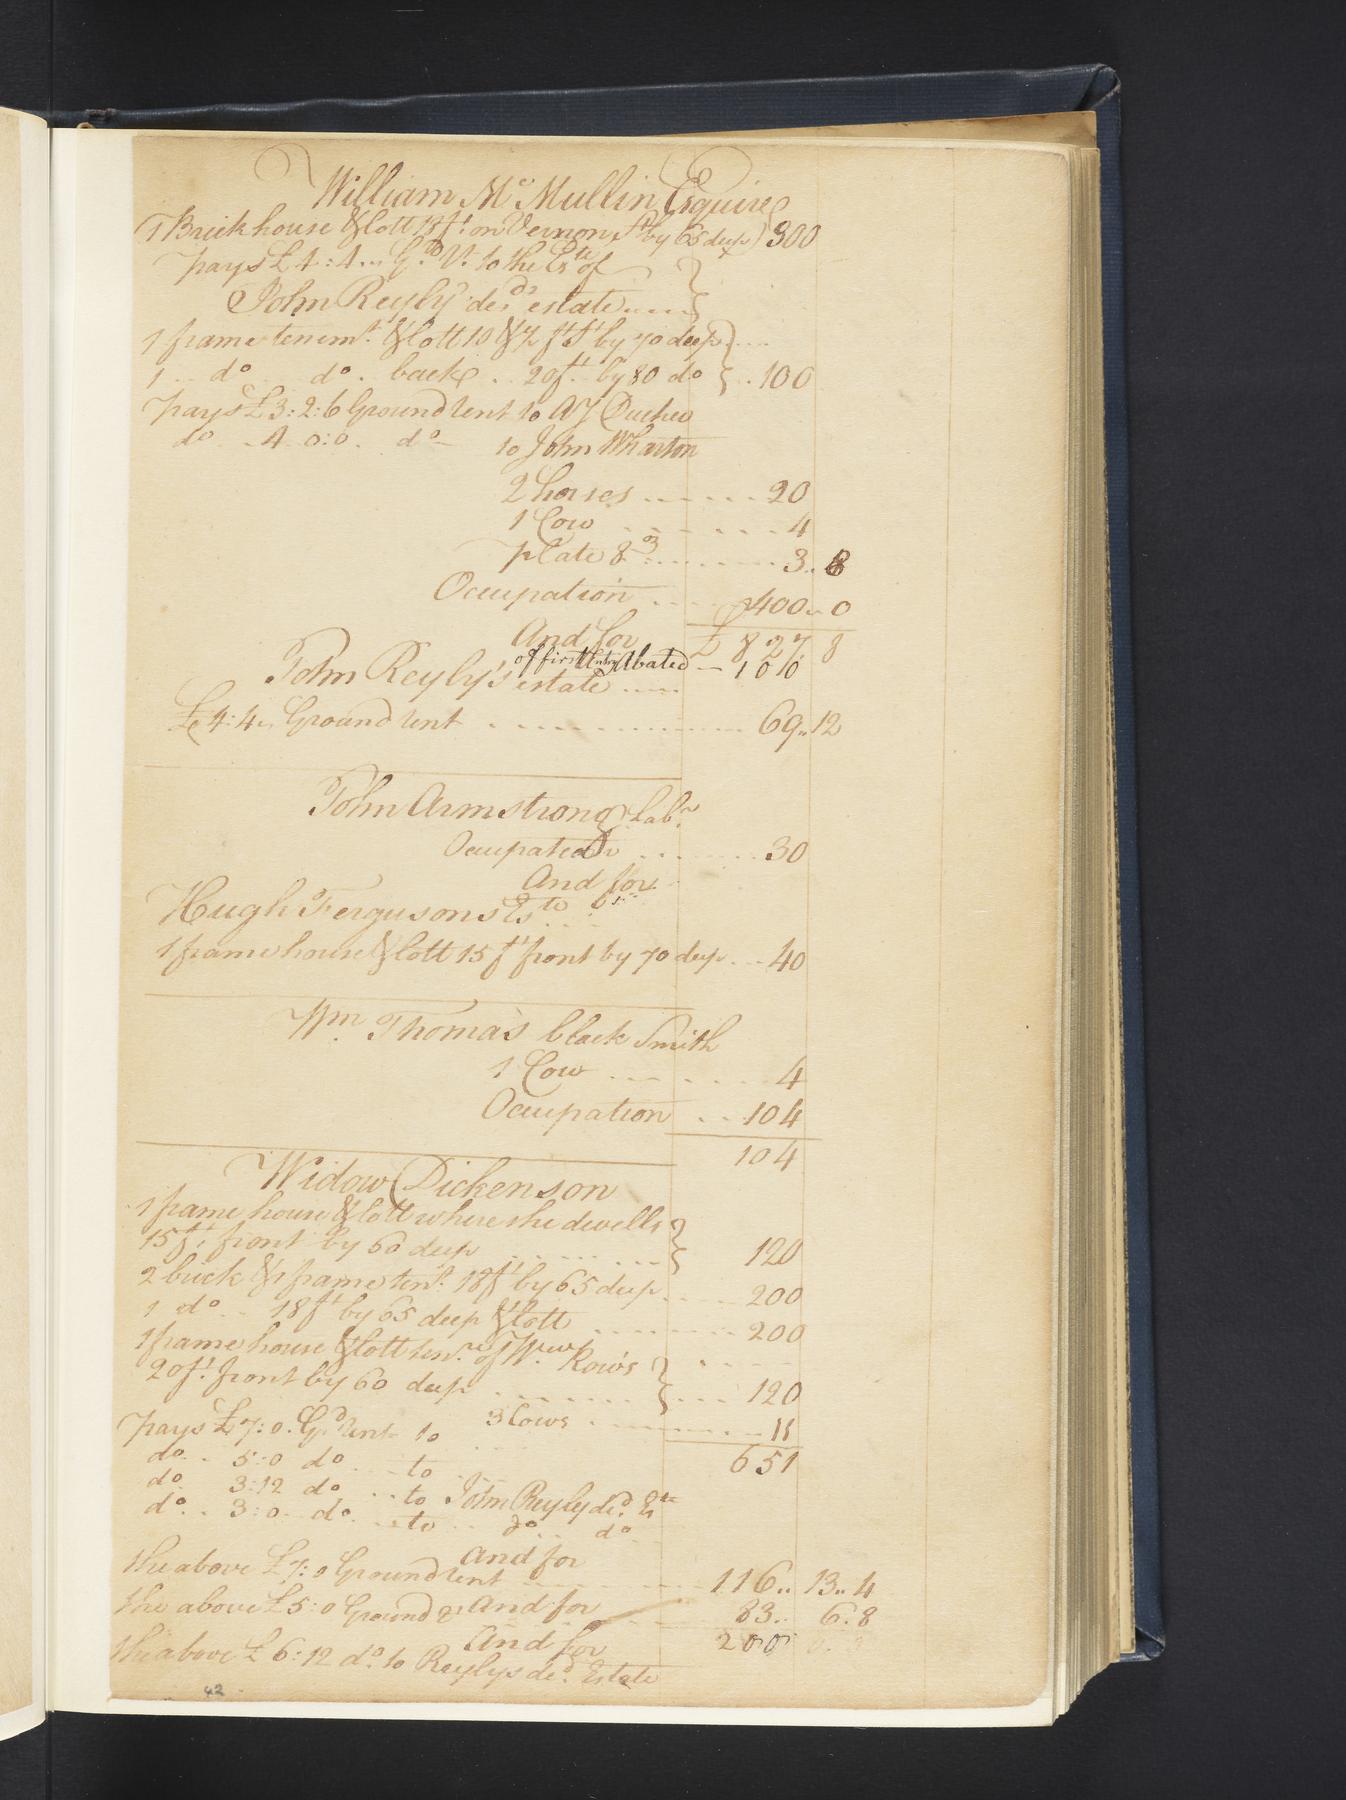 William Mc. Mullin Esquire
1 Brick house & lott 18 ft on Vernon St by 65 deep 300
pays £ 4:4.. Gd Rt. to the Este of
John Reyly decd estate ....
1 frame tenemt. & lott 10 & ½ ft ft by 70 deep ....
1 .. do ... do . back .. 20 ft. by 80 do .. 100
pays £3:2:6 Ground rent to AJ Duche
do . 4 0:0. do to John Wharton
2 horses ...... 20
1 Cow ...... 4
plate 8 oz ...... 3.. 8
Occupation .... 400.. 0
£ 827. 8
And for
of first Entry Abated — 100
John Reyly's estate ....
£4:4.. Ground rent ........ 69.. 12
John Armstrong Labr.
Occupation ...... 30
And for
Hugh Fergusons Este
1 frame house & lott 15 ft front by 70 deep ... 40
Wm. Thomas black Smith
1 Cow ...... 4
Occupation .. 104
104
Widow Dickenson
1 frame house & lott where she dwells
15 ft. front by 60 deep ...... 120
2 brick & 1 frame tent. 18 ft by 65 deep .... 200
1 do .. 18 ft by 65 deep & lott ...... 200
1 frame house & lott tenr. of Wm. Row's
20 ft. front by 60 deep ...... 120
3 Cows ...... 11
pays £7:0. Gd Rent to
651
do .. 5:0 do ... to
do 3:12 do .. to John Reyly decd. Este
do .. 3:0 .. do ... to .. do ... do
And for
the above £7:0 Ground rent ...... 116.. 13.. 4
And for
the above £5:0 Ground rt ...... 83.. 6.. 8
And for
200
the above £6:12 do. to Reylys decd. Estate
42